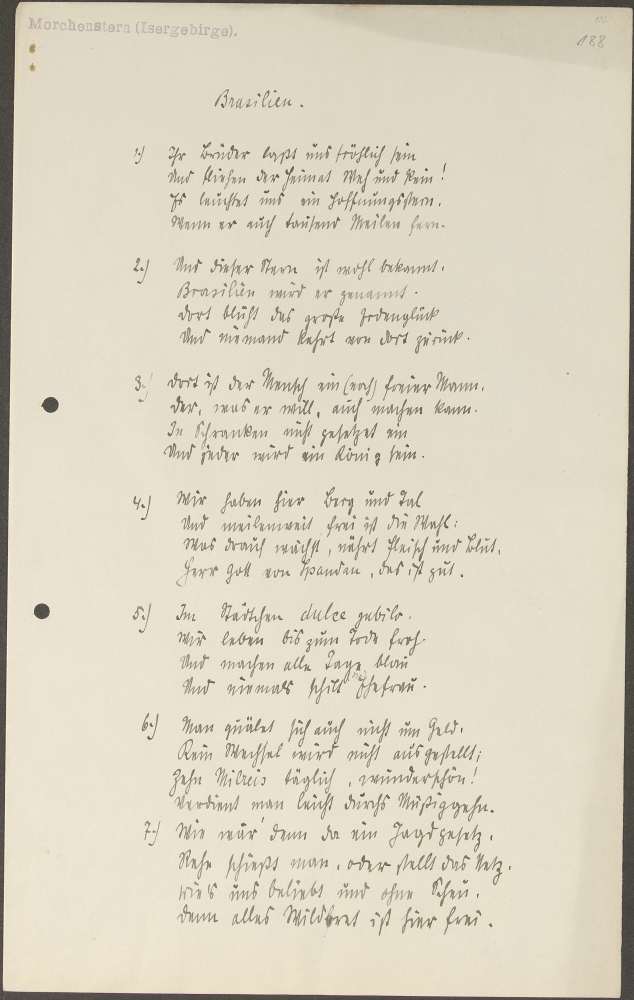 Morchenstern (Isergebirge).
188
Brasilien.
1.) Ihr Brüder laßt uns fröhlich sein
Und fliehen der Heimat Weh und Pein!
Es leuchtet uns ein Hoffnungsstern.
Wenn er auch tausend Meilen fern.
2.) Und dieser Stern ist wohl bekannt.
Brasilien wird er genannt.
Dort blüht das große Erdenglück
Und niemand kehrt von dort zurück.
3.) Dort ist der Mensch ein (noch) freier Mann.
Der, was er will, auch machen kann.
In Schranken nicht gesetzet ein
Und jeder wird ein König sein.
4.) Wir haben hier Berg und Tal
Und meilenweit frei ist die Wahl:
Was drauf wächst, nährt Fleisch und Blut.
Herr Gott von Spanden, das ist gut.
5.) Im Städtchen dulce jubilo.
Wir leben bis zum Tode froh.
Und machen alle Tage blau
Und niemals schilt Ehefrau.
6.) Man quälet sich auch nicht um Geld.
Kein Wechsel wird nicht ausgestellt;
Zehn Milreis täglich, wunderschön!
Verdient man leicht durchs Müßiggehn.
7.) Wie wär' denn da ein Jagdgesetz.
Rehe schießt man, oder stellt das Netz.
Wie's uns beliebt und ohne Scheu.
Denn alles Wildbret ist hier frei.